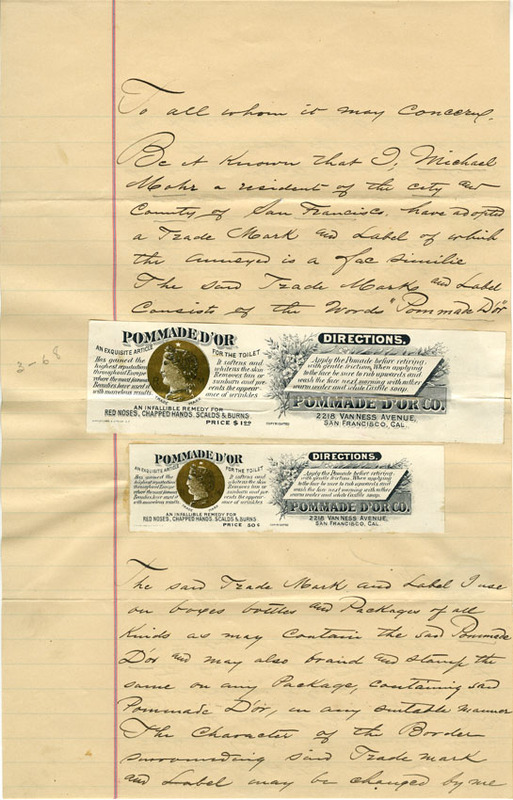 To all whom it may Concern,
Be it Known that I, Michael
Mohr a resident of the city and
County of San Francisco. have adopted
a Trade Mark and Label of which
the annexed is a fac similie
The said Trade Mark and Label
Consists of the Words "Pommade D'or"
3-68
POMMADE D'OR
AN EXQUISITE ARTICLE FOR THE TOILET
Has gained the
highest reputation
throughout Europe
where the most famous
Beauties have used it
with marvelous results.
It softens and
whitens the skin
Removes tan or
sunburn and pre-
vents the appear-
ance of wrinkles
TRADE MARK
AN INFALLIBLE REMEDY FOR
RED NOSES, CHAPPED HANDS, SCALDS & BURNS.
PRICE $1
COPYRIGHTED
DIRECTIONS.
Apply the Pomade before retiring,
with gentle friction. When applying
to the face be sure to rub upwards and
wash the face next morning with rather
warm water and white Castile soap.
POMMADE D'OR CO.
2218 VAN NESS AVENUE,
SAN FRANCISCO, CAL.
POMMADE D'OR
AN EXQUISITE ARTICLE FOR THE TOILET
Has gained the
highest reputation
throughout Europe
where the most famous
Beauties have used it
with marvelous results
It softens and
whitens the skin
Removes tan or
sunburn and pre-
vents the appear-
ance of wrinkles
TRADE MARK
AN INFALLIBLE REMEDY FOR
RED NOSES, CHAPPED HANDS, SCALDS & BURNS
PRICE 50 ¢
COPYRIGHTED
DIRECTIONS.
Apply the Pomade before retiring,
with gentle friction. When applying
to the face be sure to rub upwards and
wash the face next morning with rather
warm water and white Castile soap.
POMMADE D'OR CO.
2218 VAN NESS AVENUE,
SAN FRANCISCO, CAL.
The said Trade Mark and Label I use
on boxes bottles and Packages of all
Kinds as may contain the said Pommade
D'or and may also brand and stamp the
same on any Package, containing said
Pommade D'or, in any suitable manner
The Character of the Border
surrounding said Trade mark
and Label may be changed by me